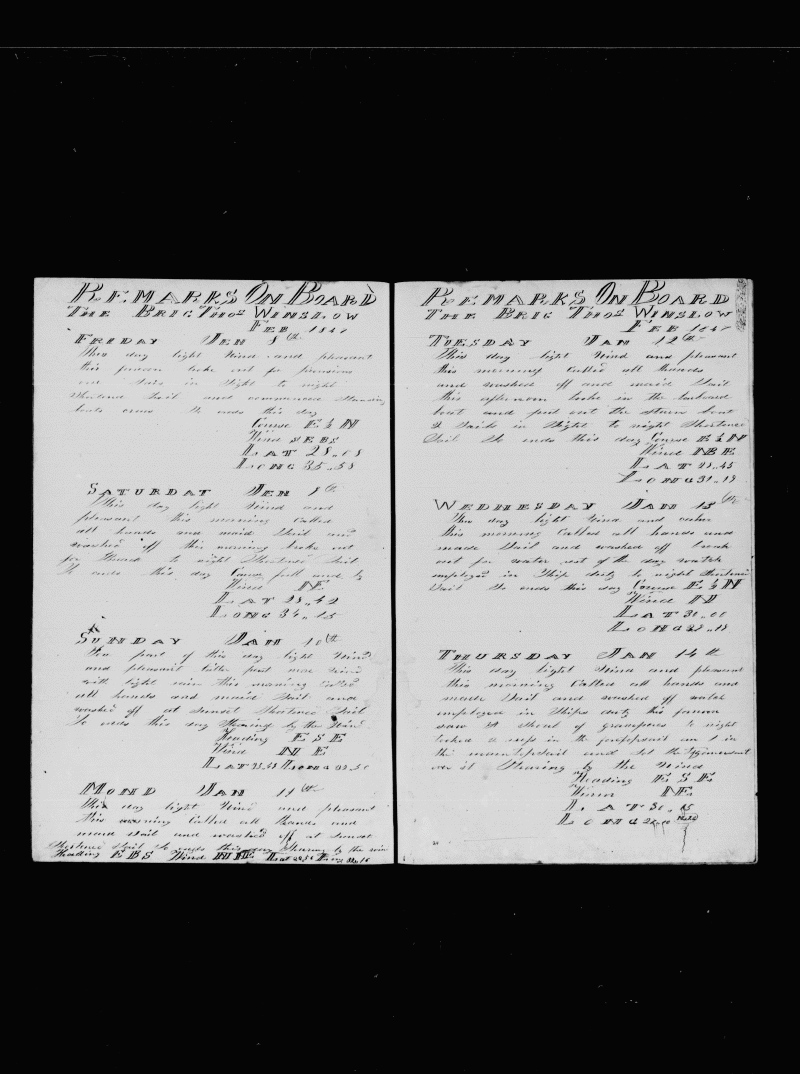 REMARKS ON BOARD
THE BRIG THOS WINSLOW
FEB 1847
FRIDAY JEN 8th
This day light wind and pleasant
this forenoon broke out for
sett in Sight to night
Shortend Sail and commenced Standing
boats crews So ends this day
Course E½N
Wind SEBS
LAT 28..08
LONG 35..58
SATURDAY JEN 9th
This day light wind and
pleasant this morning Called
all hands and maid Sail and
washed off this morning broke out
for to night Shortend Sail
So ends this day Course full and by
Wind NE
LAT 28..42
LONG 34..15
SUNDAY JAN 10th
Fore part of this day light Wind
and pleasant latter part more wind
with light rain this morning Called
all hands and maid Sail and
washed off at Sunset Shortened Sail
So ends this day Stearing by the Wind
Heading ESE
Wind NE
LAT LONG
MOND JAN 11th
This day light Wind and pleasant
this morning Called all Hands and
maid Sail and washed off at Sunset
Shortened Sail So ends this day Stearing by the win
Heading EBS Wind NNE Lat Long
REMARKS ON BOARD
THE BRIG THOS WINSLOW
FEB 1847
TUESDAY JAN 12th
This day light Wind and pleasant
this morning Called all hands
and washed off and maid Sail
this afternoon took in the larboard
boat and put out the Starn boat
2 Sails in Sight to night Shortened
Sail So ends this day Course E½N
Wind NBE
LAT 29..45
LONG 31..19
WEDNESDAY JAN 13th
This day light Wind and
this morning Called all hands and
made Sail and washed off break
out for water rest of the day watch
employed in Ship duty to night Shortened
Sail So ends this day Course E½N
Wind N
LAT 30..00
LONG
THURSDAY JAN 14th
This day light Wind and pleasant
this morning Called all hands and
made Sail and washed off watch
employed in Ships duty this forenoon
saw A Shoal of grampuses to night
tucked a reef in the foretopsail an 1 in
the maintopsail and
over it Stearing by the Wind
Heading ESE
Winn NE
LAT 30..05
LONG